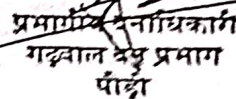 प्रभागीय वनाधिकारी
गढ़वाल वन प्रभाग
पौड़ी